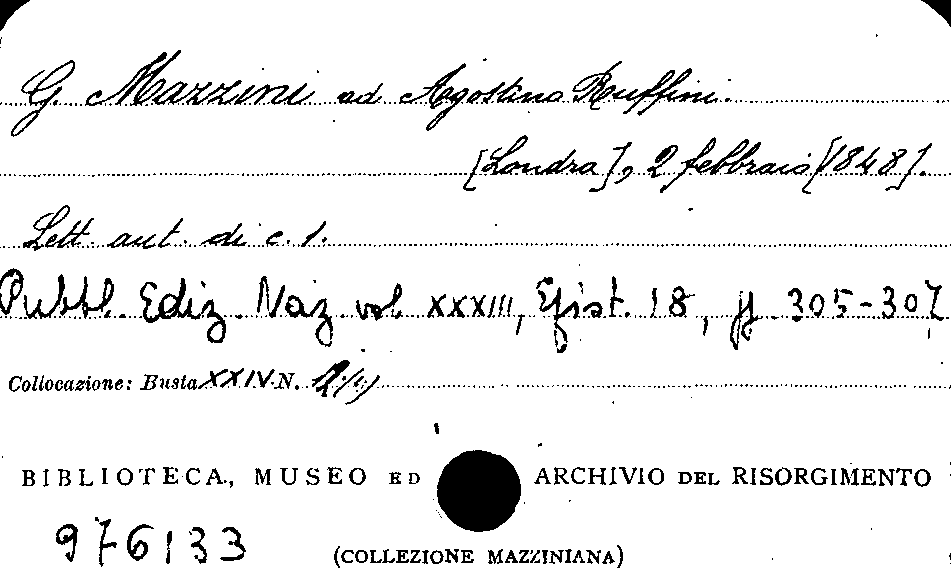 G. Mazzini ad Agostino Ruffini.
[Londra], 2 febbraio [1848].
Lett. aut. di c. 1.
Pubbl. Ediz. Naz. vol. XXXIII, Epist. 18, pp. 305-307
Collocazione: Busta XXIV N.
BIBLIOTECA, MUSEO ED ARCHIVIO DEL RISORGIMENTO
976133
(COLLEZIONE MAZZINIANA)